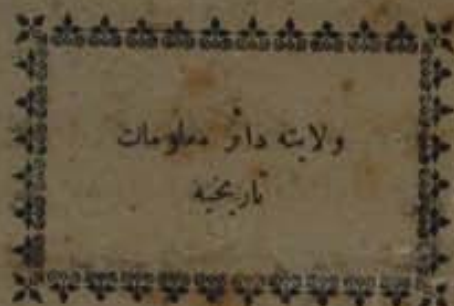 ولایته دائر معلومات
تاریخیه